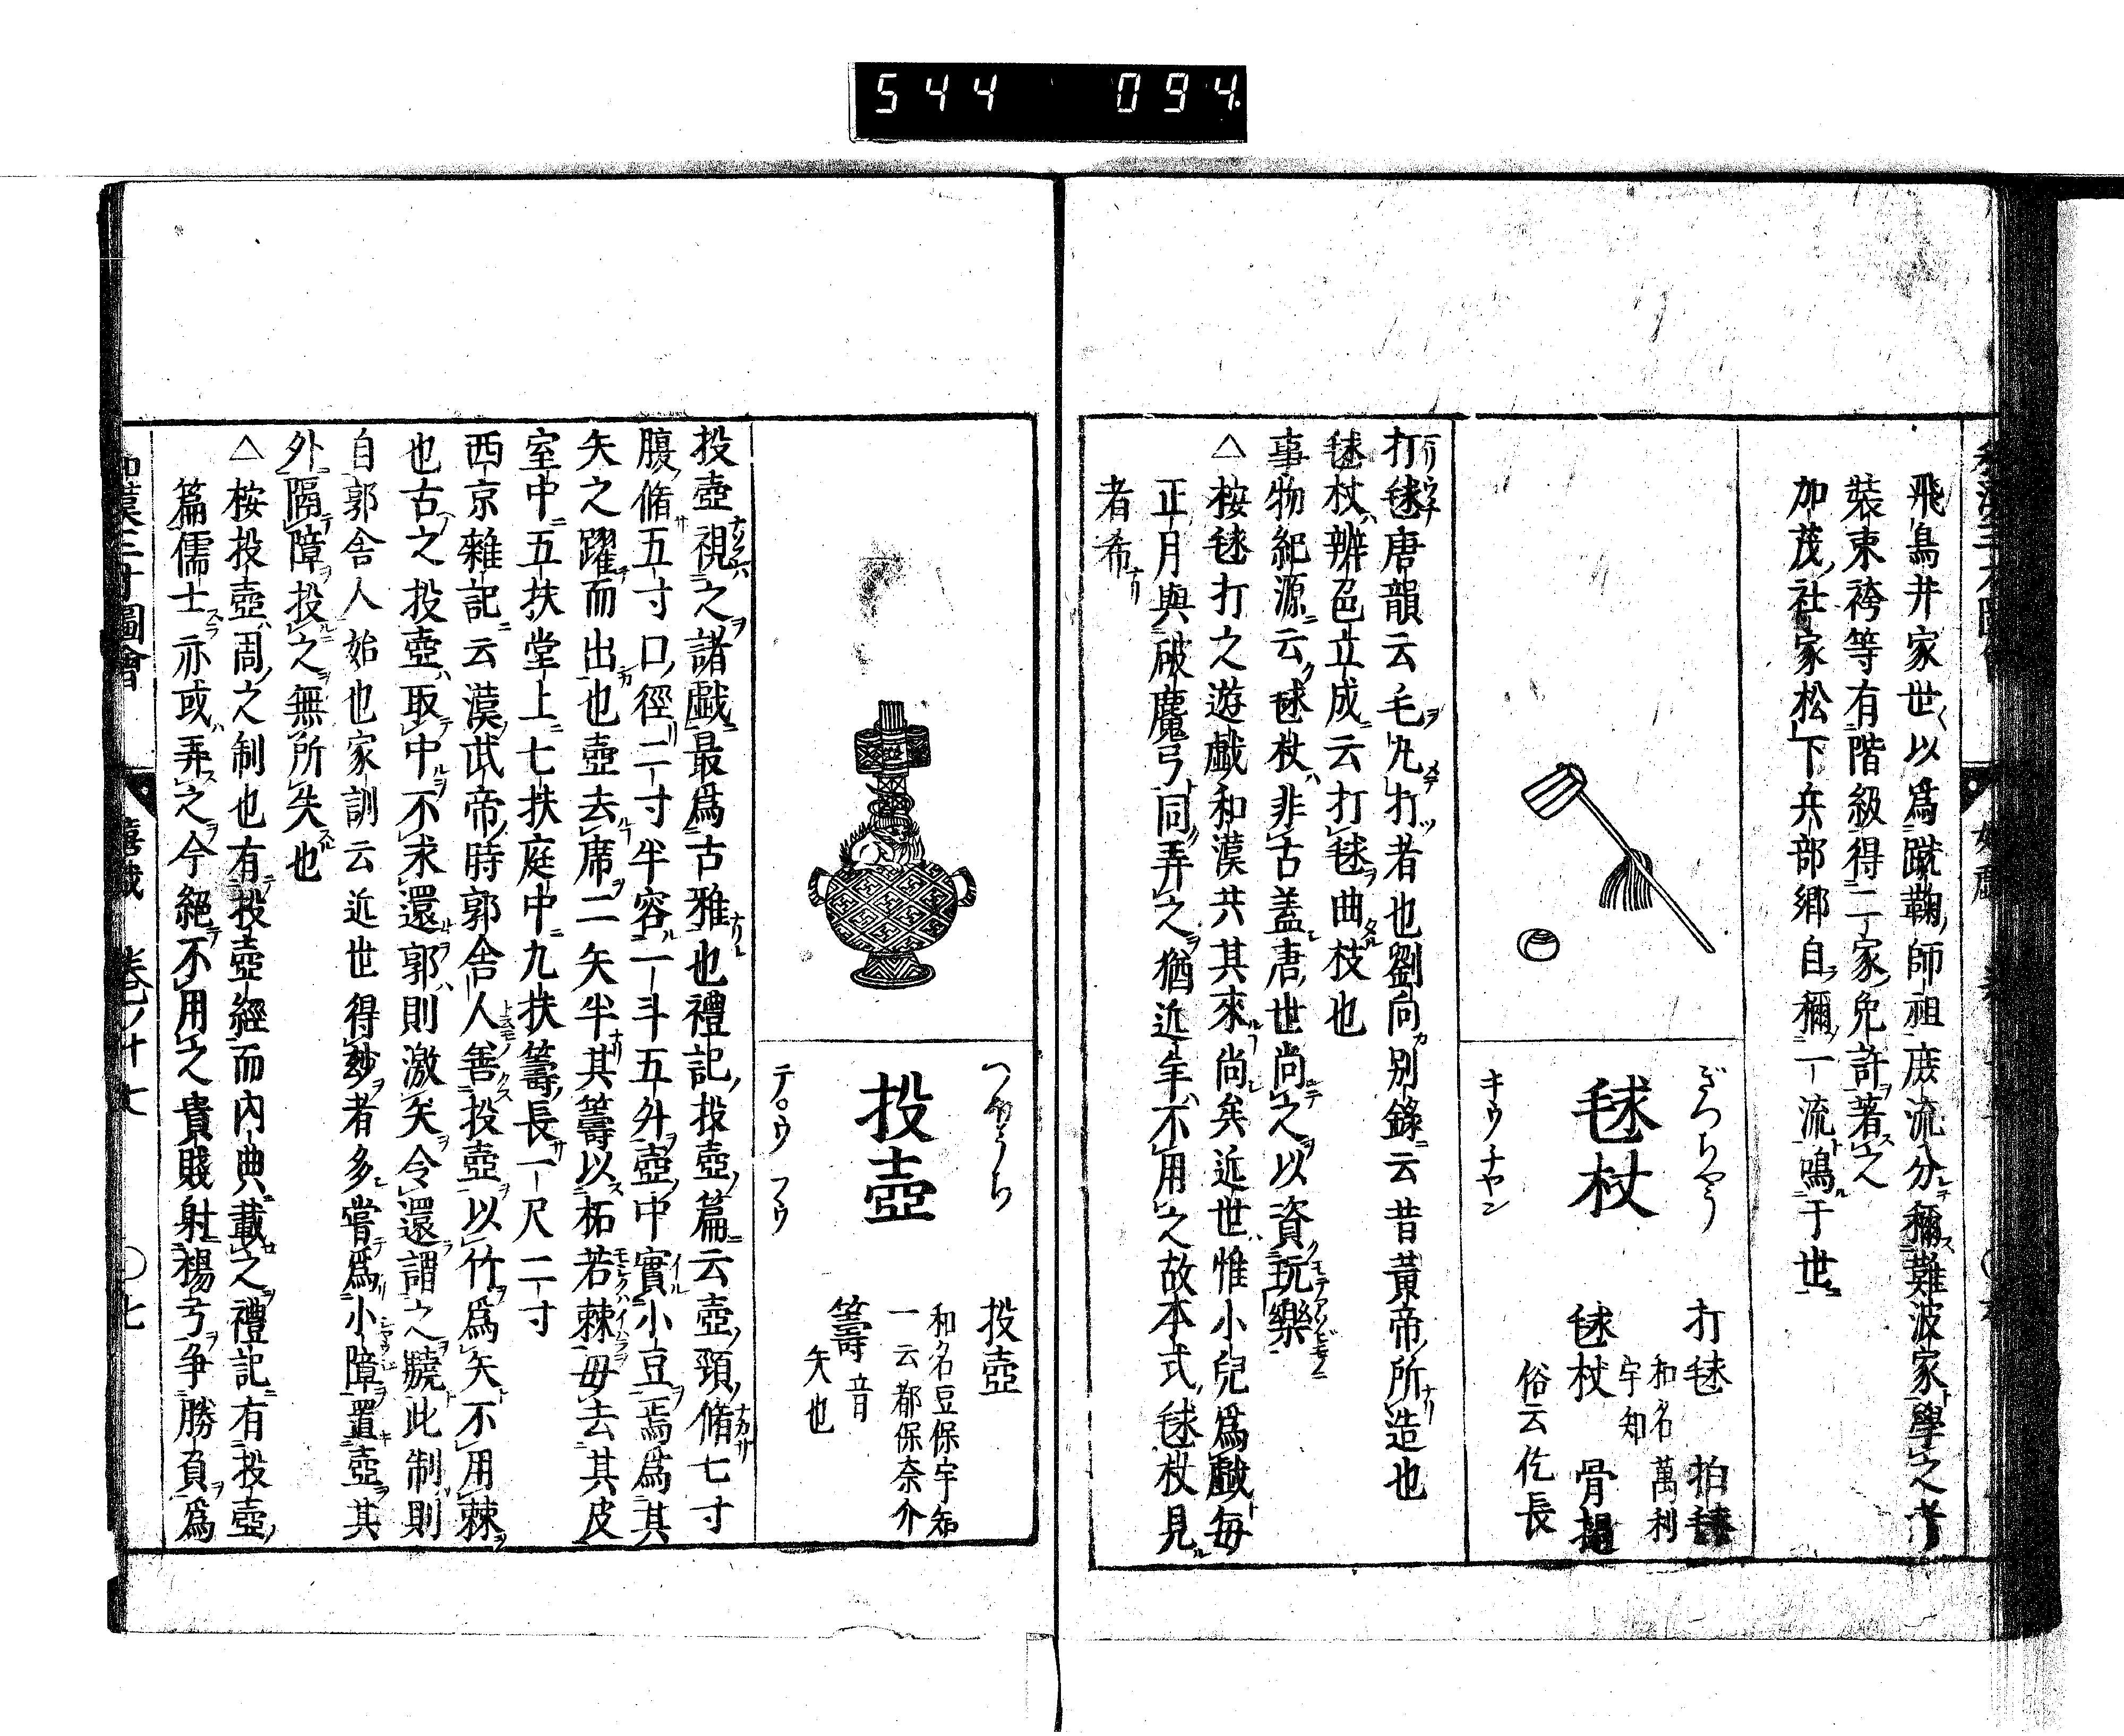 544 094
飛鳥井家世〱以爲蹴鞠師祖庻流分稱難波家學之者
裝束袴等有階級得二家免許著之
加茂社家松下兵部郷自稱一流鳴于世
ぎつちやう
毬杖
キウ チヤン
打毬 拍毬
和名萬利
宇知
毬杖 骨撾
俗云仡長
打毬唐韻云毛丸打者也劉向别錄云昔黃帝所造也
毬杖辨色立成云打毬曲杖也
事物紀源云毬杖非古盖唐世尚之以資玩樂
△按毬打之遊戯和漢共其來尚矣近世惟小兒爲戯毎
正月與破魔弓同弄之猶近年不用之故本式毬杖見
者希
つぼうち
投壺
テ゚ウ フウ
投壺
和名豆保宇知
一云都保奈介
籌音
矢也
投壺視之諸戯最爲古雅也禮記投壺篇云壺頸脩七寸
腹脩五寸口徑二寸半容一斗五升壺中實小豆焉爲其
矢之躍而出也壺去席二矢半其籌以柘若棘毋去其皮
室中五扶堂上七扶庭中九扶籌長一尺二寸
西京雜記云漢武帝時郭舎人善投壺以竹爲矢不用棘
也古之投壺取中不求還郭則激矢令還謂之驍此制則
自郭舎人始也家訓云近世得玅者多嘗爲小障置壺其
外隔障投之無所失也
△按投壺周之制也有投壺經而内典載之禮記有投壺
篇儒士亦或弄之今絕不用之貴賤射楊弓争勝負爲
和漢三才圖會 嬉戯 卷ノ十七 〇七